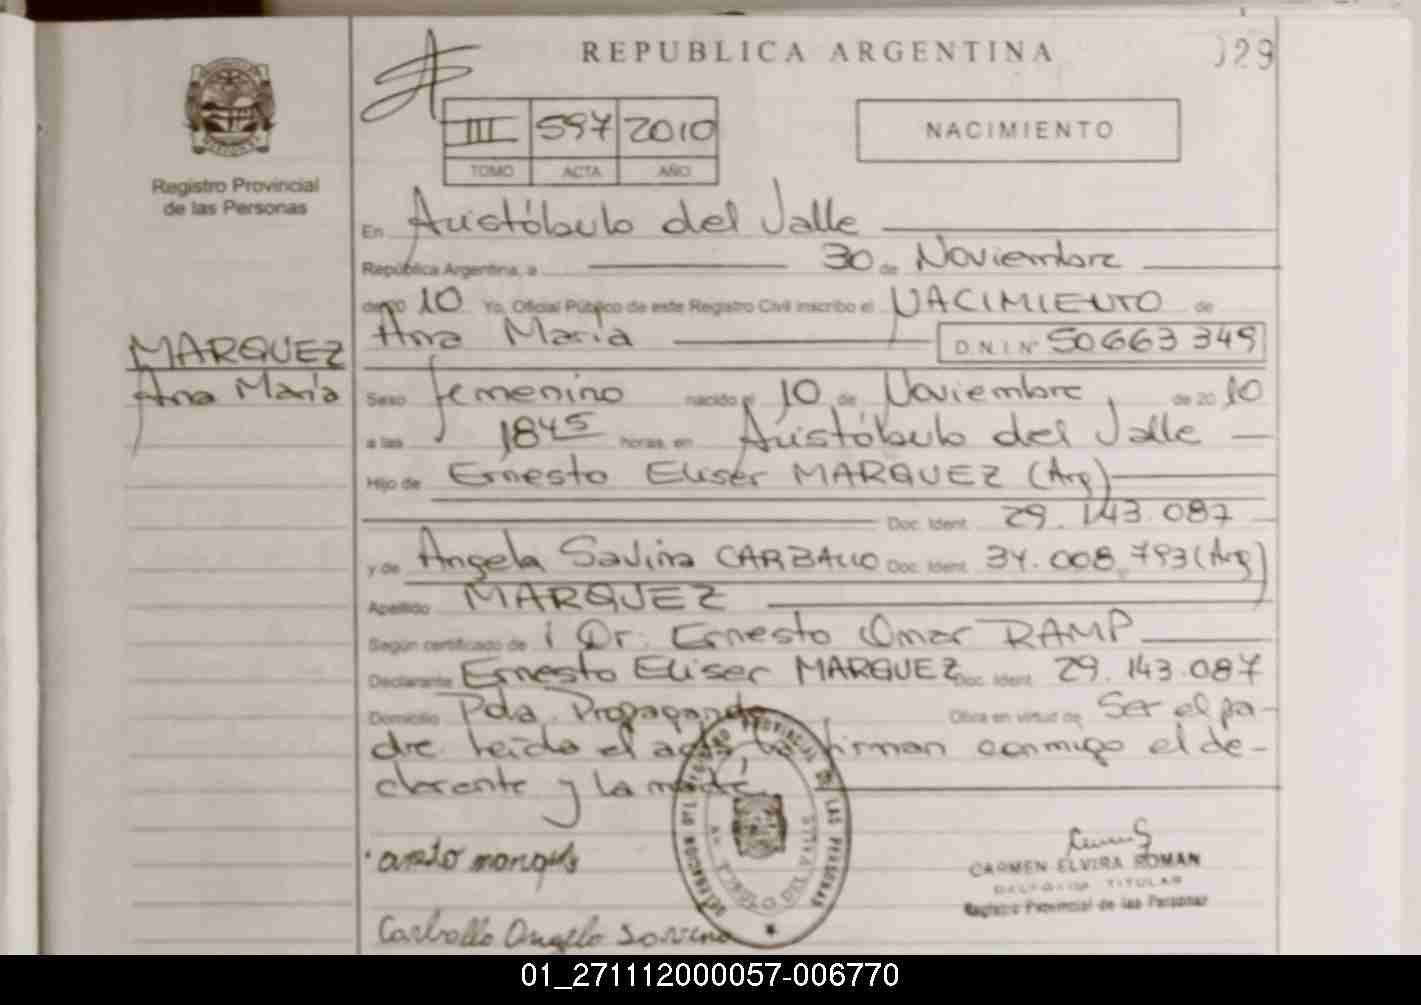 REPUBLICA ARGENTINA
029
III 597 2010
TOMO ACTA AÑO
NACIMIENTO
Registro Provincial
de las Personas
En Aristóbulo del Valle
República Argentina, a 30 de Noviembre
de 20 10 Yo, Oficial Público de este Registro Civil inscribo el NACIMIENTO de
Ana María D.N.I. Nº 50663349
MARQUEZ
Ana María
Sexo femenino nacido el 10 de Noviembre de 20 10
a las 1845 horas, en Aristóbulo del Valle
Hijo de Ernesto Eliser MARQUEZ (Arg)
Doc. Ident. 29.143.087
y de Angela Savina CARBALLO Doc. Ident. 34.008.793 (Arg)
Apellido MARQUEZ
Según certificado de Dr. Ernesto Omar RAMP
Declarante Ernesto Eliser MARQUEZ Doc. Ident. 29.143.087
Domicilio Pda. Propaganda Obra en virtud de Ser el pa-
dre leída el acta la firman conmigo el de-
clarante y la madre.
CARMEN ELVIRA ROMAN
DELEGADA TITULAR
Registro Provincial de las Personas
Carballo Angela Savina
01_271112000057-006770